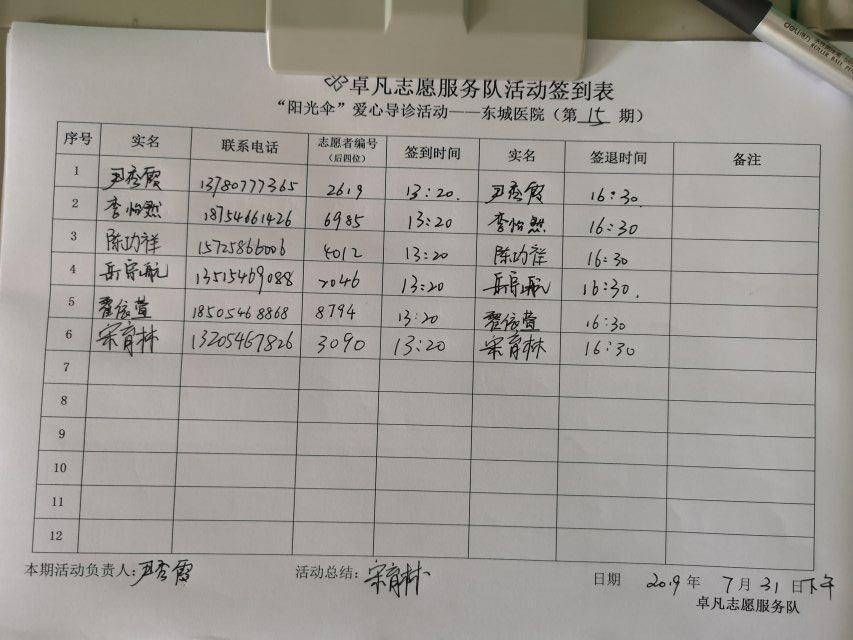 卓凡志愿服务队活动签到表
“阳光伞”爱心导诊活动——东城医院（第 15 期）
序号 实名 联系电话 志愿者编号（后四位） 签到时间 实名 签退时间 备注
1 尹秀霞 13780777365 2619 13:20. 尹秀霞 16:30.
2 李怡然 18754661426 6985 13:20 李怡然 16:30
3 陈功祥 15725866006 4012 13:20 陈功祥 16:30
4 岳宗航 13515469088 2046 13:20 岳宗航 16:30.
5 翟依萱 18505468868 8794 13:20 翟依萱 16:30
6 宋育林 13205467826 3090 13:20 宋育林 16:30
7
8
9
10
11
12
本期活动负责人：尹秀霞 活动总结：宋育林 日期 2019 年 7 月 31 日下午
卓凡志愿服务队
deli